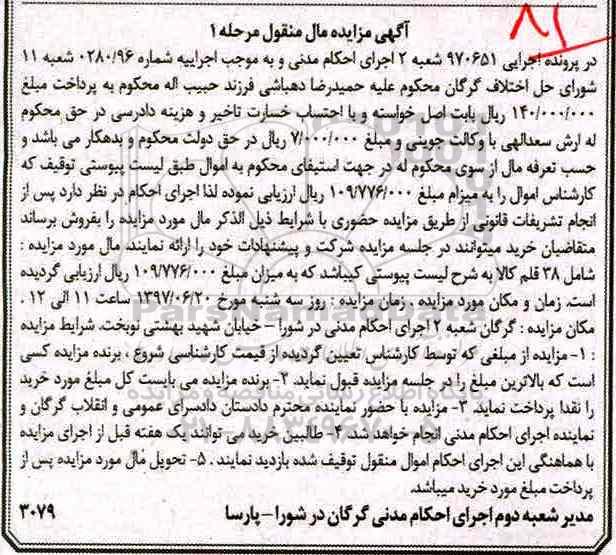 ۸۱
آگهی مزایده مال منقول مرحله ۱
در پرونده اجرایی ۹۷۰۶۵۱ شعبه ۲ اجرای احکام مدنی و به موجب اجراییه شماره ۰۲۸۰/۹۶ شعبه ۱۱
شورای حل اختلاف گرگان محکوم علیه حمیدرضا دهباشی فرزند حبیب اله محکوم به پرداخت مبلغ
۱۴۰/۰۰۰/۰۰۰ ریال بابت اصل خواسته و با احتساب خسارت تاخیر و هزینه دادرسی در حق محکوم
له ارش سعدالهی با وکالت جوینی و مبلغ ۷/۰۰۰/۰۰۰ ریال در حق دولت محکوم و بدهکار می باشد و
حسب تعرفه مال از سوی محکوم له در جهت استیفای محکوم به اموال طبق لیست پیوستی توقیف که
کارشناس اموال را به میزام مبلغ ۱۰۹/۷۷۶/۰۰۰ ریال ارزیابی نموده لذا اجرای احکام در نظر دارد پس از
انجام تشریفات قانونی از طریق مزایده حضوری با شرایط ذیل الذکر مال مورد مزایده را بفروش برساند
متقاضیان خرید میتوانند در جلسه مزایده شرکت و پیشنهادات خود را ارائه نمایند. مال مورد مزایده :
شامل ۳۸ قلم کالا به شرح لیست پیوستی کیباشد که به میزان مبلغ ۱۰۹/۷۷۶/۰۰۰ ریال ارزیابی گردیده
است. زمان و مکان مورد مزایده . زمان مزایده : روز سه شنبه مورخ ۱۳۹۷/۰۶/۲۰ ساعت ۱۱ الی ۱۲ .
مکان مزایده : گرگان شعبه ۲ اجرای احکام مدنی در شورا – خیابان شهید بهشتی نوبخت. شرایط مزایده
: ۱- مزایده از مبلغی که توسط کارشناس تعیین گردیده از قیمت کارشناسی شروع ، برنده مزایده کسی
است که بالاترین مبلغ را در جلسه مزایده قبول نماید. ۲- برنده مزایده می بایست کل مبلغ مورد خرید
را نقدا پرداخت نماید. ۳- مزایده با حضور نماینده محترم دادستان دادسرای عمومی و انقلاب گرگان و
نماینده اجرای احکام مدنی انجام خواهد شد. ۴- طالبین خرید می توانند یک هفته قبل از اجرای مزایده
با هماهنگی این اجرای احکام اموال منقول توقیف شده بازدید نمایند . ۵- تحویل مال مورد مزایده پس از
پرداخت مبلغ مورد خرید میباشد.
مدیر شعبه دوم اجرای احکام مدنی گرگان در شورا – پارسا
۳۰۷۹
ParsNamadData